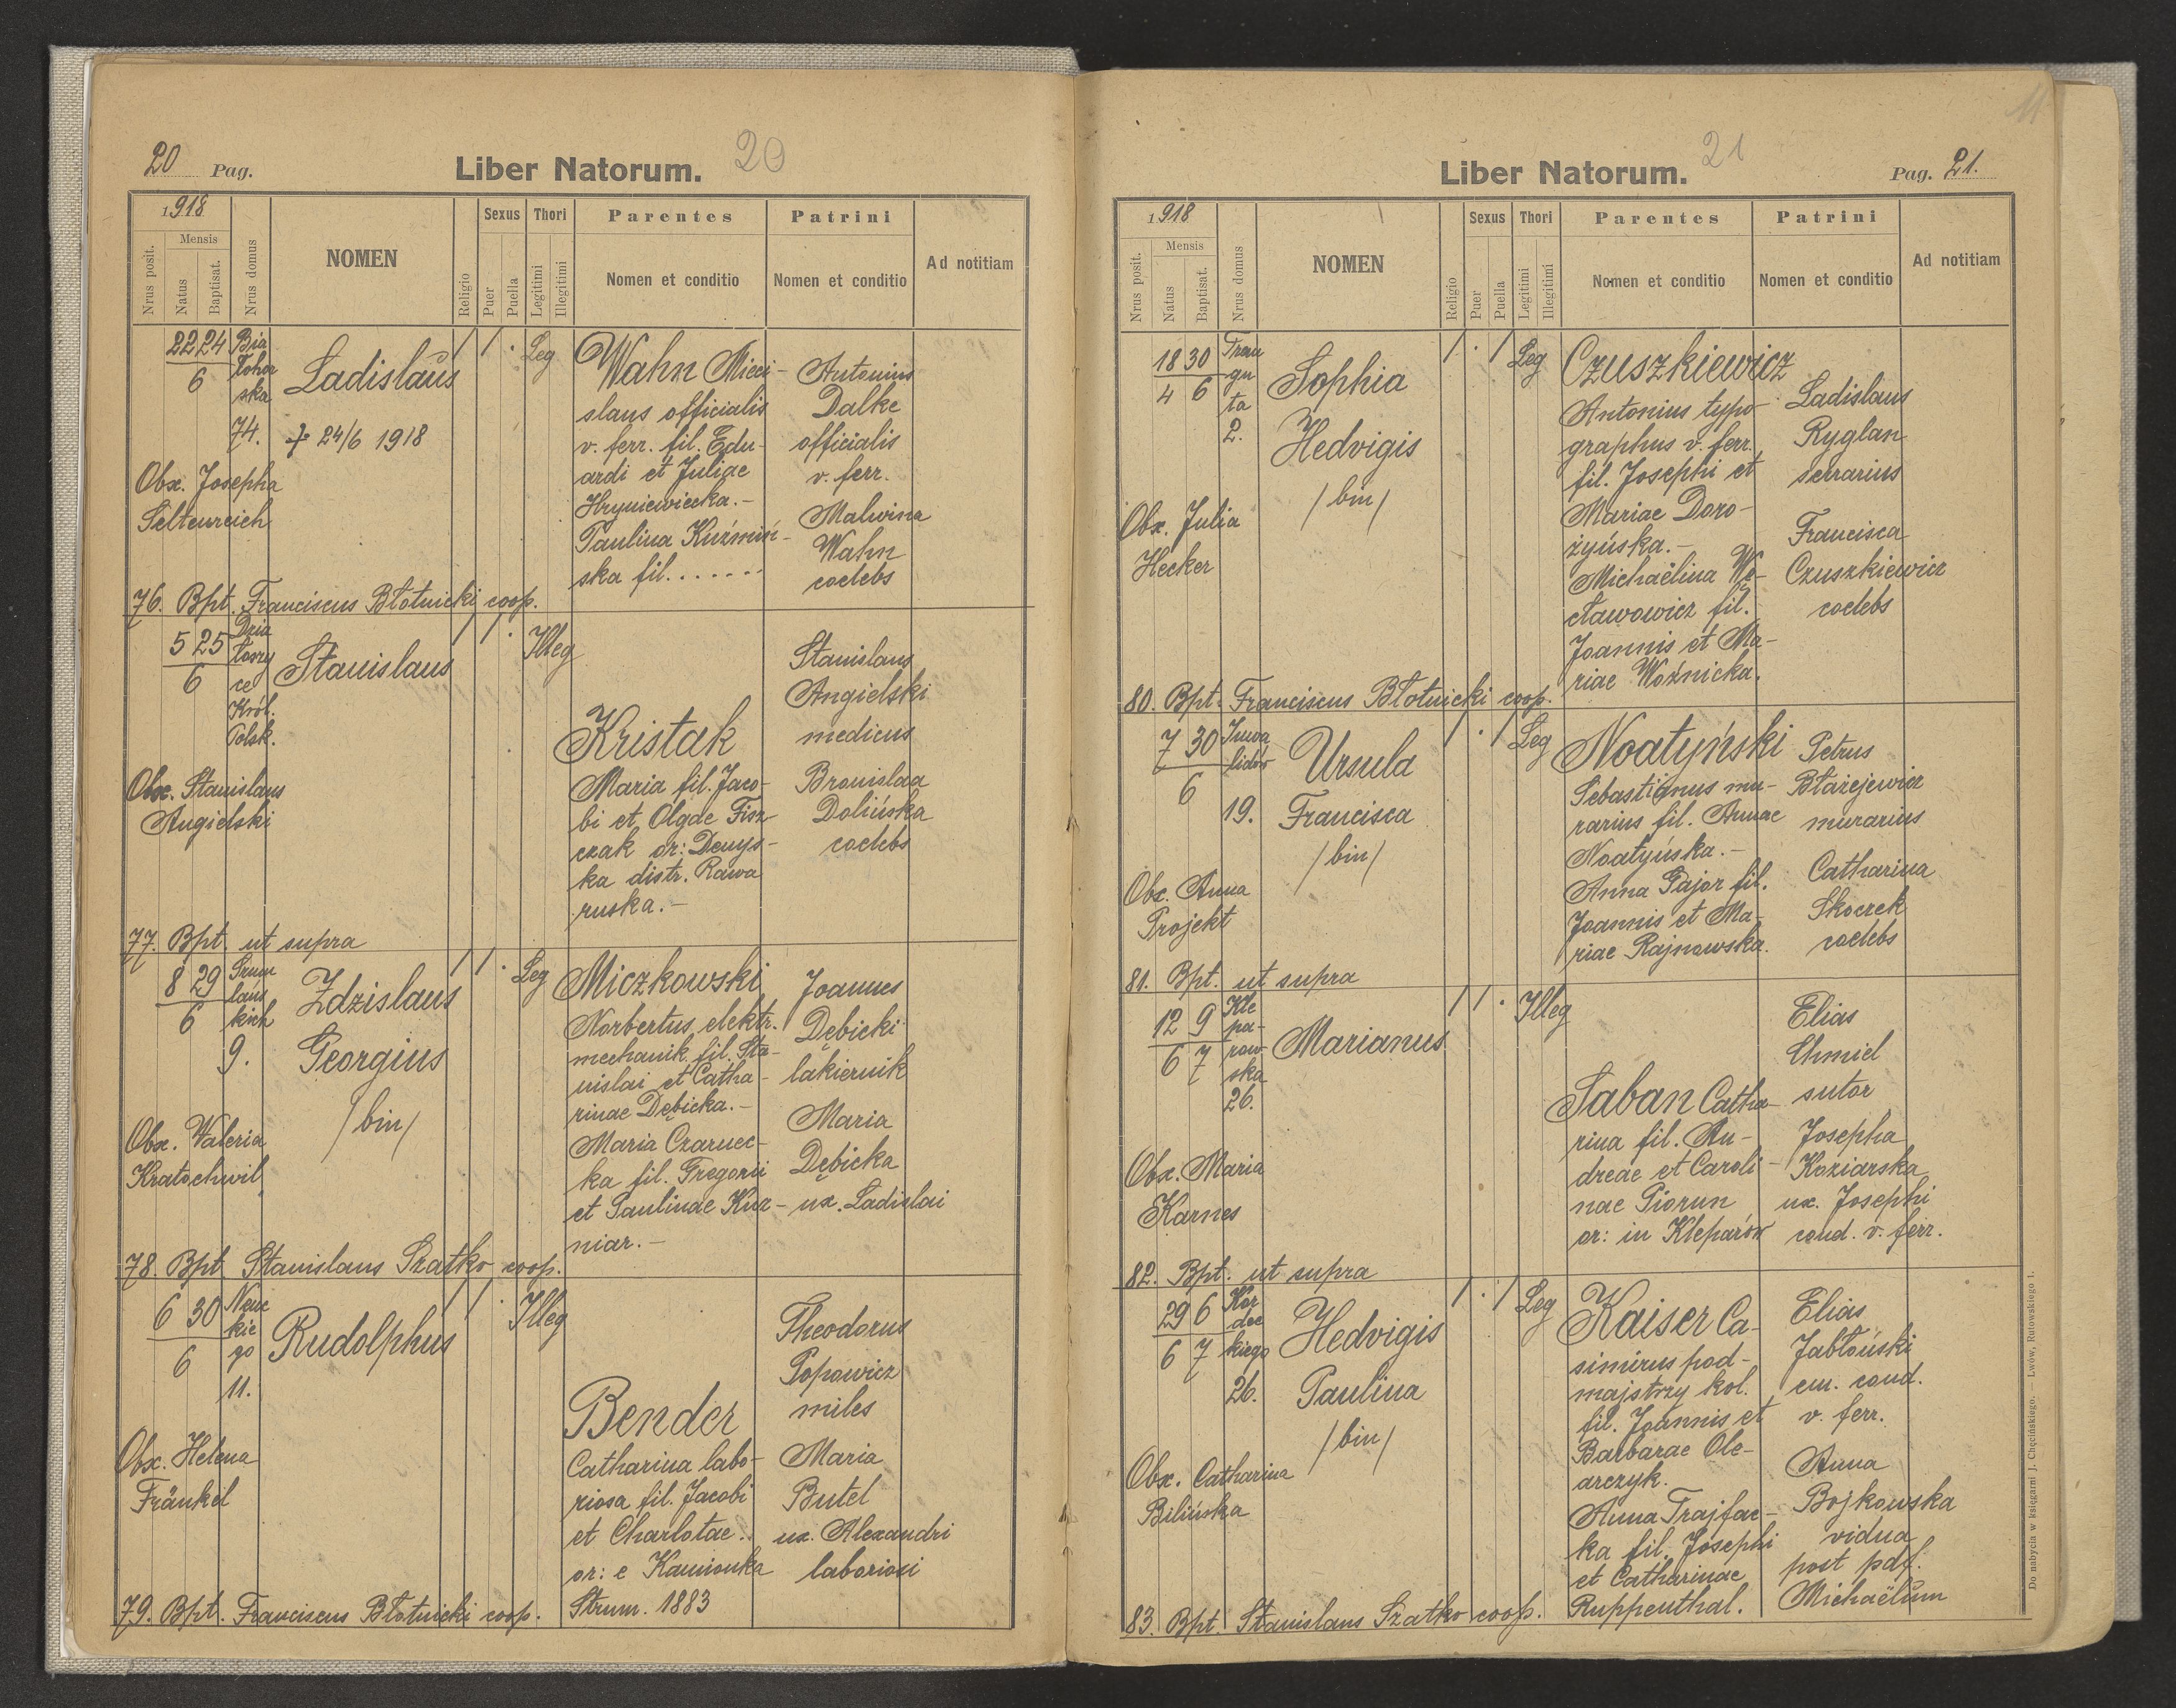 20 Pag.
Liber Natorum. 20
1918
Mensis
Nrus posit.
Natus
Baptisat.
Nrus domus
NOMEN
Religio
Sexus
Puer
Puella
Thori
Legitimi
Illegitimi
Parentes
Nomen et conditio
Patrini
Nomen et conditio
Ad notitiam
22 24
6
Bia
łohor
ska
74.
Ladislaus
† 24/6 1918
Obx. Josepha
Seltenreich
/ / . Leg
Wahn Mieci-
slaus officialis
v. ferr. fil. Edu-
ardi et Juliae
Hryniewiecka.-
Paulina Kuźmiń-
ska fil. . . . . . .
Antonius
Dalke
officialis
v. ferr.
Malwina
Wahn
coelebs
76. Bpt. Franciscus Błotnicki coop.
5 25
6
Dzia
łoszy
ce
Król.
Polsk.
Stanislaus
Obx. Stanislaus
Angielski
/ / . Illeg
Kristak
Maria fil. Jaco-
bi et Olgae Fisz-
czak or: Denys-
ka distr. Rawa
ruska.-
Stanislaus
Angielski
medicus
Bronislaa
Dolińska
coelebs
77. Bpt. ut supra
8 29
6
Szum
lańs
kich
9.
Zdzislaus
Georgius
/bin/
Obx. Waleria
Kratochwil
/ / . Leg
Miczkowski
Norbertus, elektr.
mechanik. fil. Sta-
nislai et Catha-
rinae Dębicka.-
Maria Czarnec-
ka fil. Gregorii
et Paulinae Kuz-
niar.-
Joannes
Dębicki
lakiernik
Maria
Dębicka
ux. Ladislai
78. Bpt. Stanislaus Szatko coop.
6 30
6
kie
go
11.
Rudolphus
Obx. Helena
Fränkel
/ / . Illeg
Bender
Catharina labo-
riosa fil. Jacobi
et Charlotae..
or: e Kamionka
Strum. 1883
Theodorus
Popowicz
miles
Maria
Butel
ux. Alexandri
laboriosi
79. Bpt. Franciscus Błotnicki coop.
11
Liber Natorum. 21
Pag. 21.
1918
Mensis
Nrus posit.
Natus
Baptisat.
Nrus domus
NOMEN
Religio
Sexus
Puer
Puella
Thori
Legitimi
Illegitimi
Parentes
Nomen et conditio
Patrini
Nomen et conditio
Ad notitiam
18 30
4 6
Trau
gu
ta
2.
Sophia
Hedvigis
/bin/
Obx. Julia
Hecker
/ . / Leg
Czuszkiewicz
Antonius typo-
graphus v. ferr.
fil. Josephi et
Mariae Doro-
żyńska.-
Michaëlina Wo-
cławowicz fil.
Joannis et Ma-
riae Woźnicka.
Ladislaus
Ryglan
serrarius
Francisca
Czuszkiewicz
coelebs
80. Bpt. Franciscus Błotnicki coop.
7 30
6
Inwa
lidów
19.
Ursula
Francisca
/bin/
Obx. Anna
Projekt
/ . / Leg
Noatyński
Sebastianus mu-
rarius fil. Annae
Noatyńska.-
Anna Gajor fil.
Joannis et Ma-
riae Rajnowska.
Petrus
Błażejewicz
murarius
Catharina
Skoczek
coelebs
81. Bpt. ut supra
12 9
6 7
Kle
pa-
row-
ska
26.
Marianus
Obx. Maria
Karnes
/ / . Illeg
Saban Catha-
rina fil. An-
dreae et Caroli-
nae Piorun
or: in Kleparów
Elias
Chmiel
sutor
Josepha
Koziarska
ux. Josephi
cond. v. ferr.
82. Bpt. ut supra
29 6
6 7
Kor
dec
kiego
26.
Hedvigis
Paulina
/bin/
Obx. Catharina
Bilińska
/ . / Leg
Kaiser Ca-
simirus pod-
majstrzy kol.
fil. Joannis et
Barbarae Ole-
arczyk.
Anna Trajfac-
ka fil. Josephi
et Catharinae
Ruppenthal.
Elias
Jabłoński
em. cond.
v. ferr.
Anna
Bojkowska
vidua
post pdf.
Michaëlum
83. Bpt. Stanislaus Szatko coop.
Do nabycia w księgarni J. Chęcińskiego. — Lwów, Rutowskiego 1.